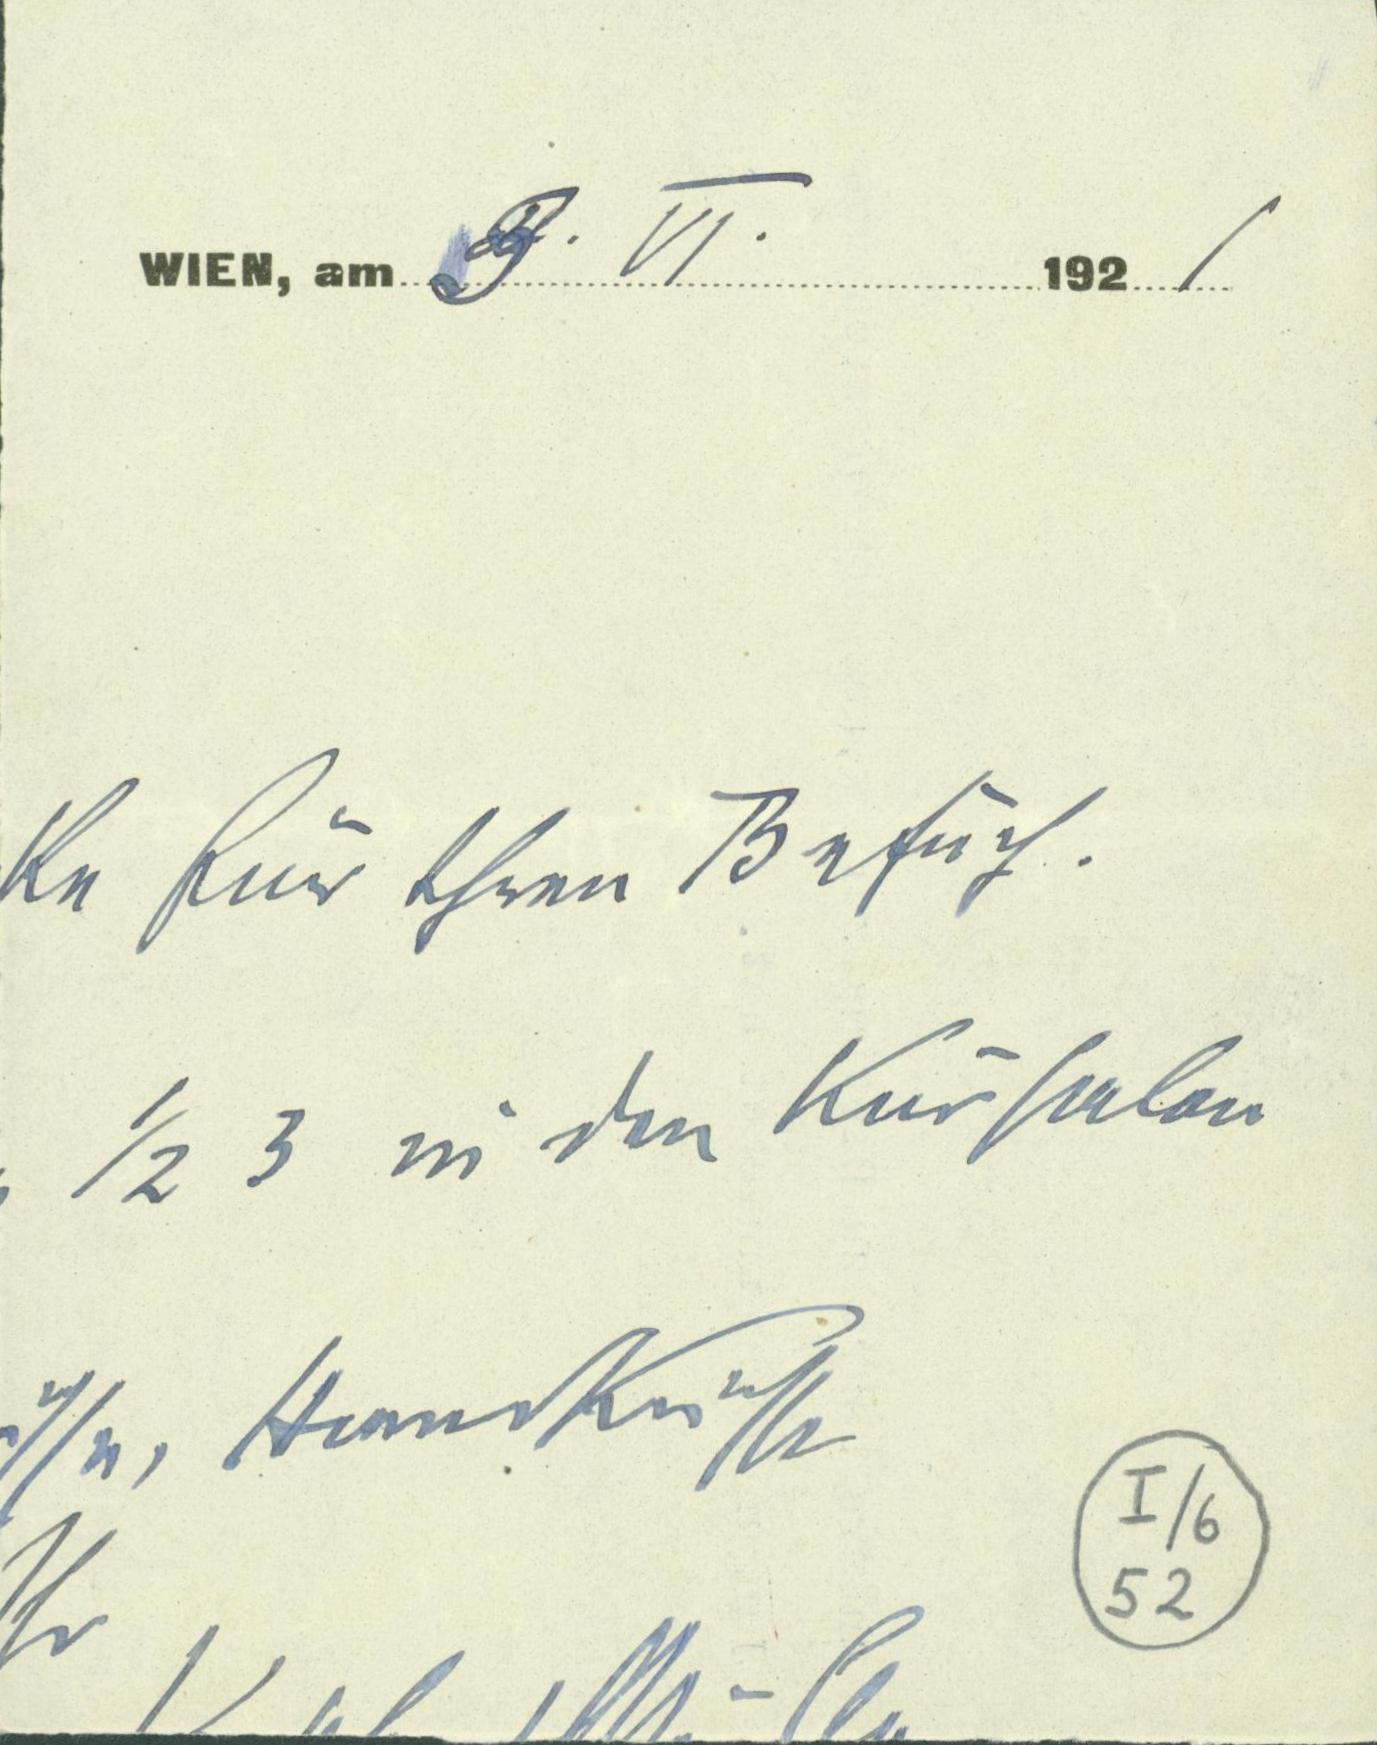 WIEN, am 9. VI. 1921
ke für Ihren Besuch.
1/2 3 in den Kursalon
Handküsse
Ihr
I/6
52